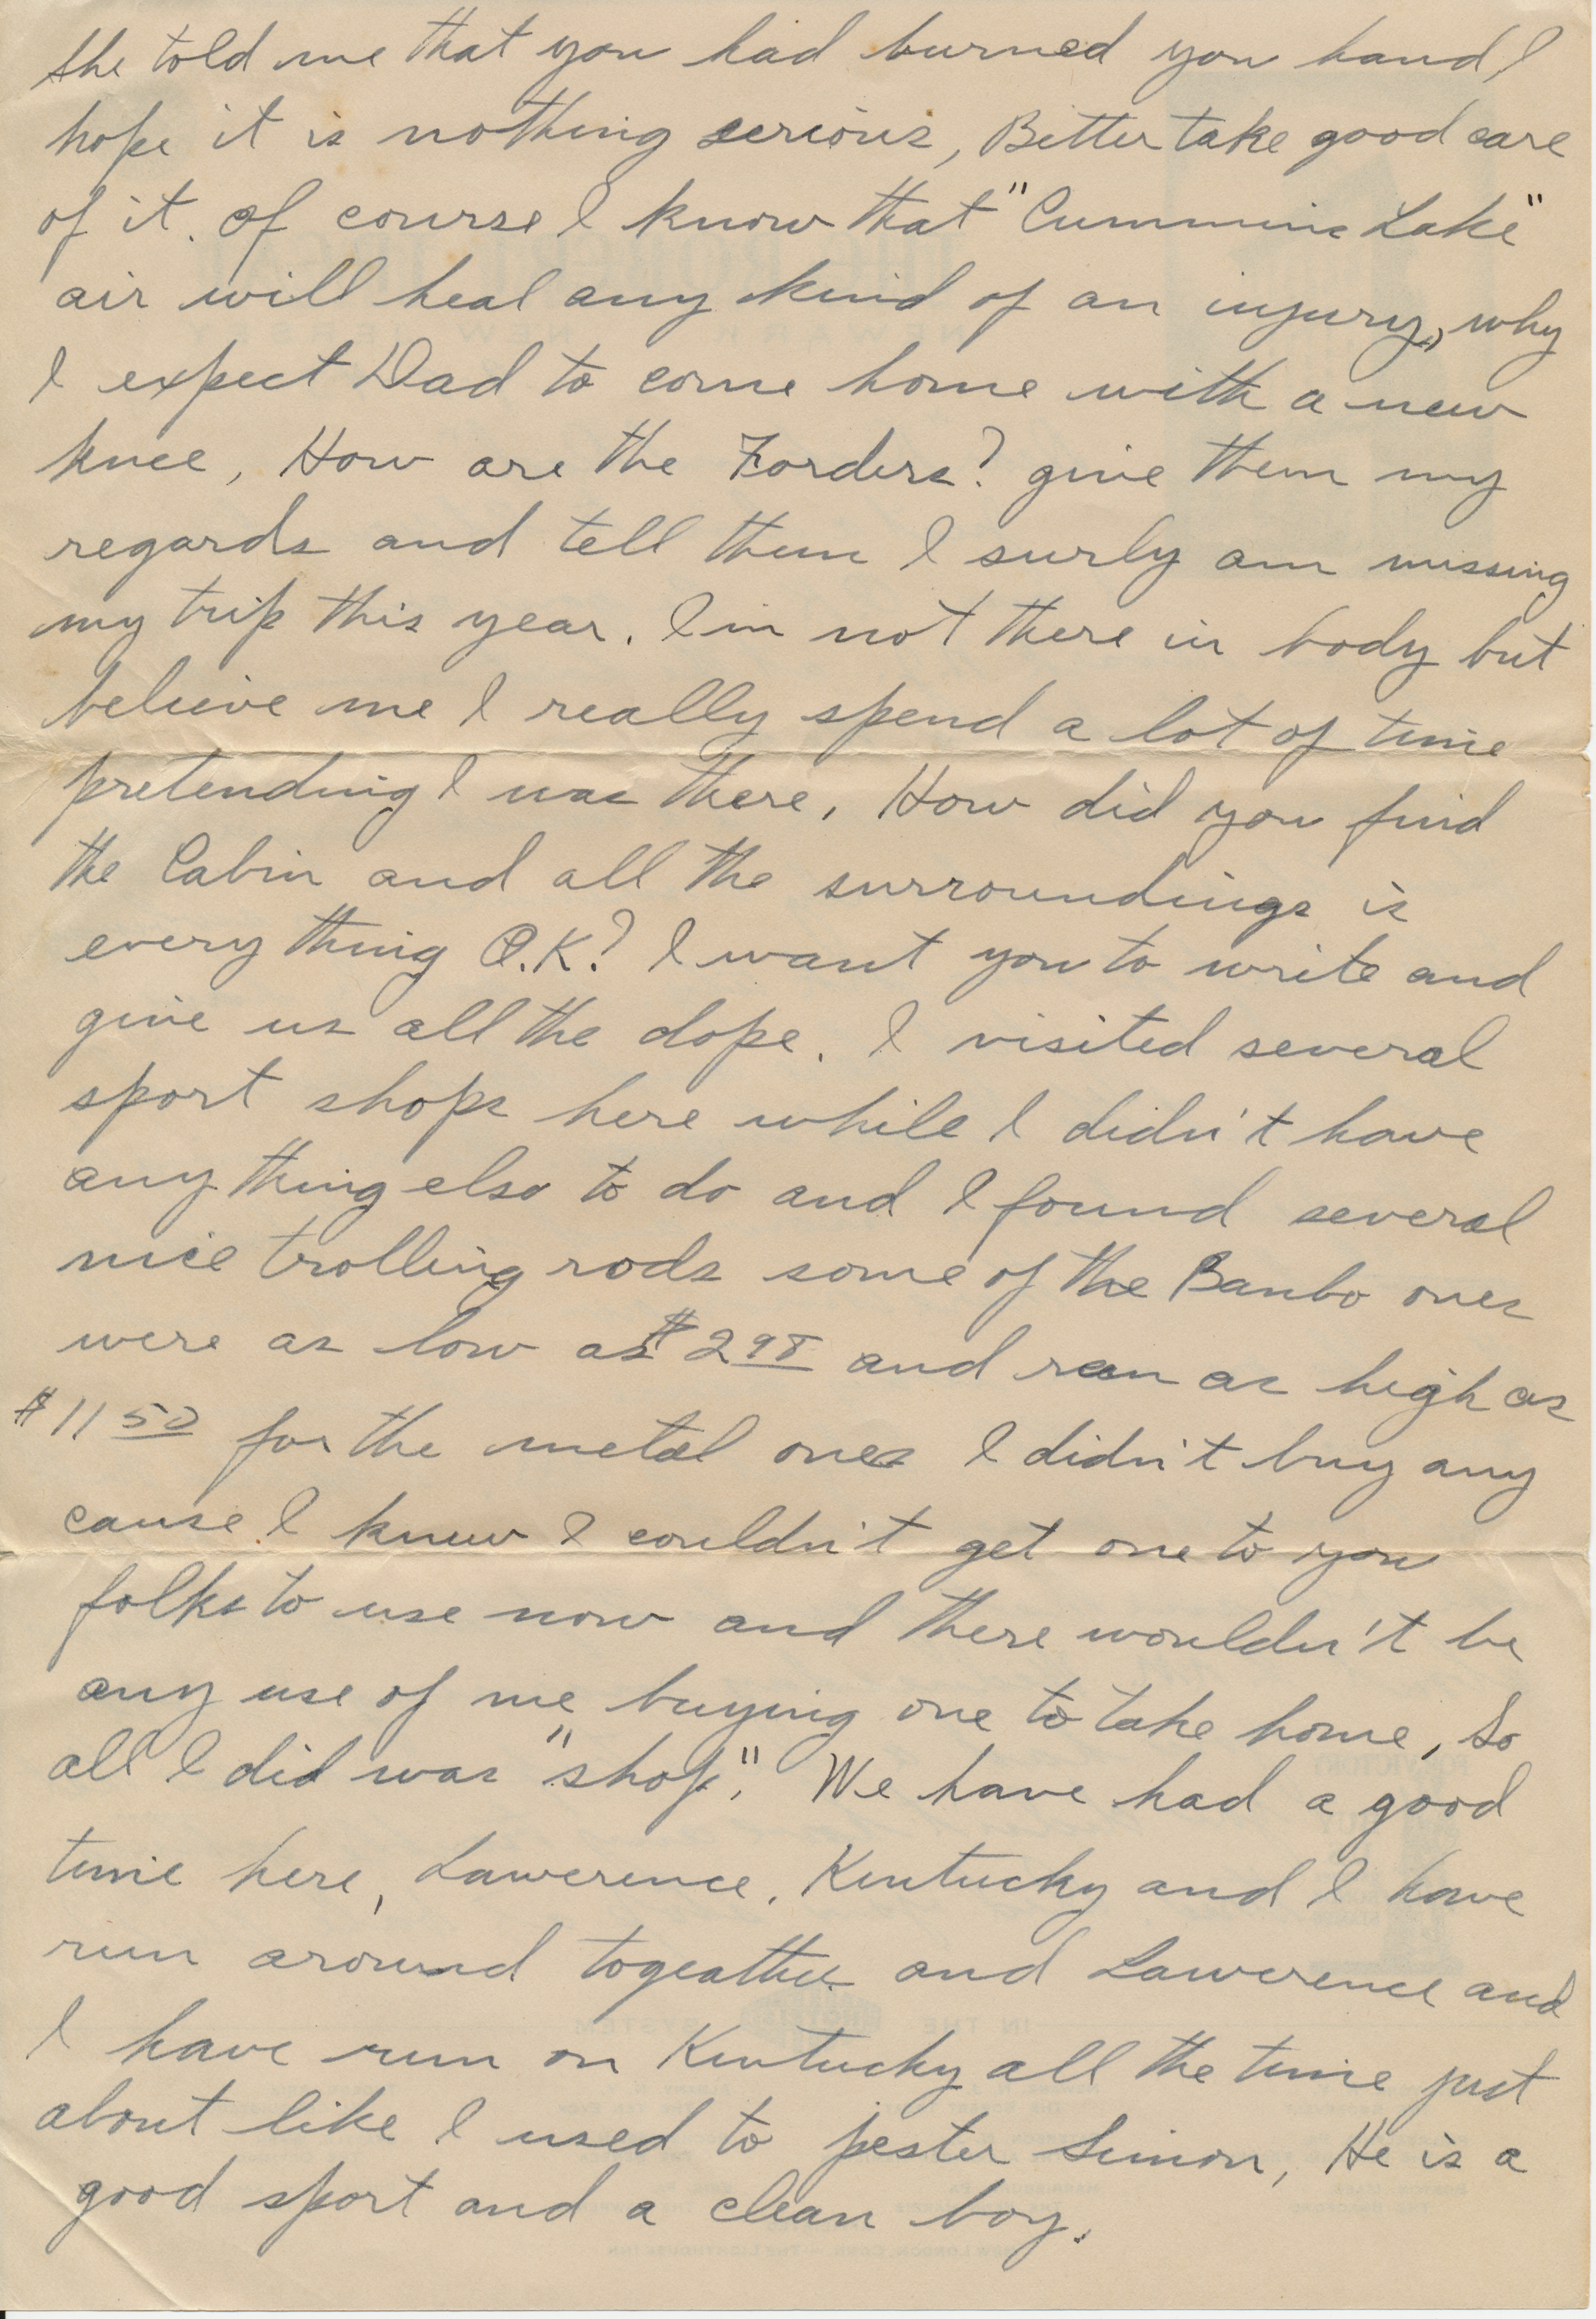 she told me that you had burned you hand, I
hope it is nothing serious, Better take good care
of it. Of course I know that "Cummins Lake"
air will heal any kind of an injury, why
I expect Dad to come home with a new
knee, How are the Forders? give them my
regards and tell them I surly am missing
my trip this year. I'm not there in body but
believe me I really spend a lot of time
pretending I was there, How did you find
the Cabin and all the surroundings is
every thing O.K? I want you to write and
give us all the dope. I visited several
sport shops here while I didn't have
any thing else to do and I found several
nice trolling rods some of the Banbo ones
were as low as $2 98 and ran as high as
$11 50 for the metal ones I didn't buy any
cause I knew I couldn't get one to you
folks to use now and there wouldn't be
any use of me buying one to take home, So
all I did was "shop". We have had a good
time here, Lawerence, Kentucky and I have
run around togeather and Lawerence and
I have run on Kentucky all the time just
about like I used to pester Simon, He is a
good sport and a clean boy.